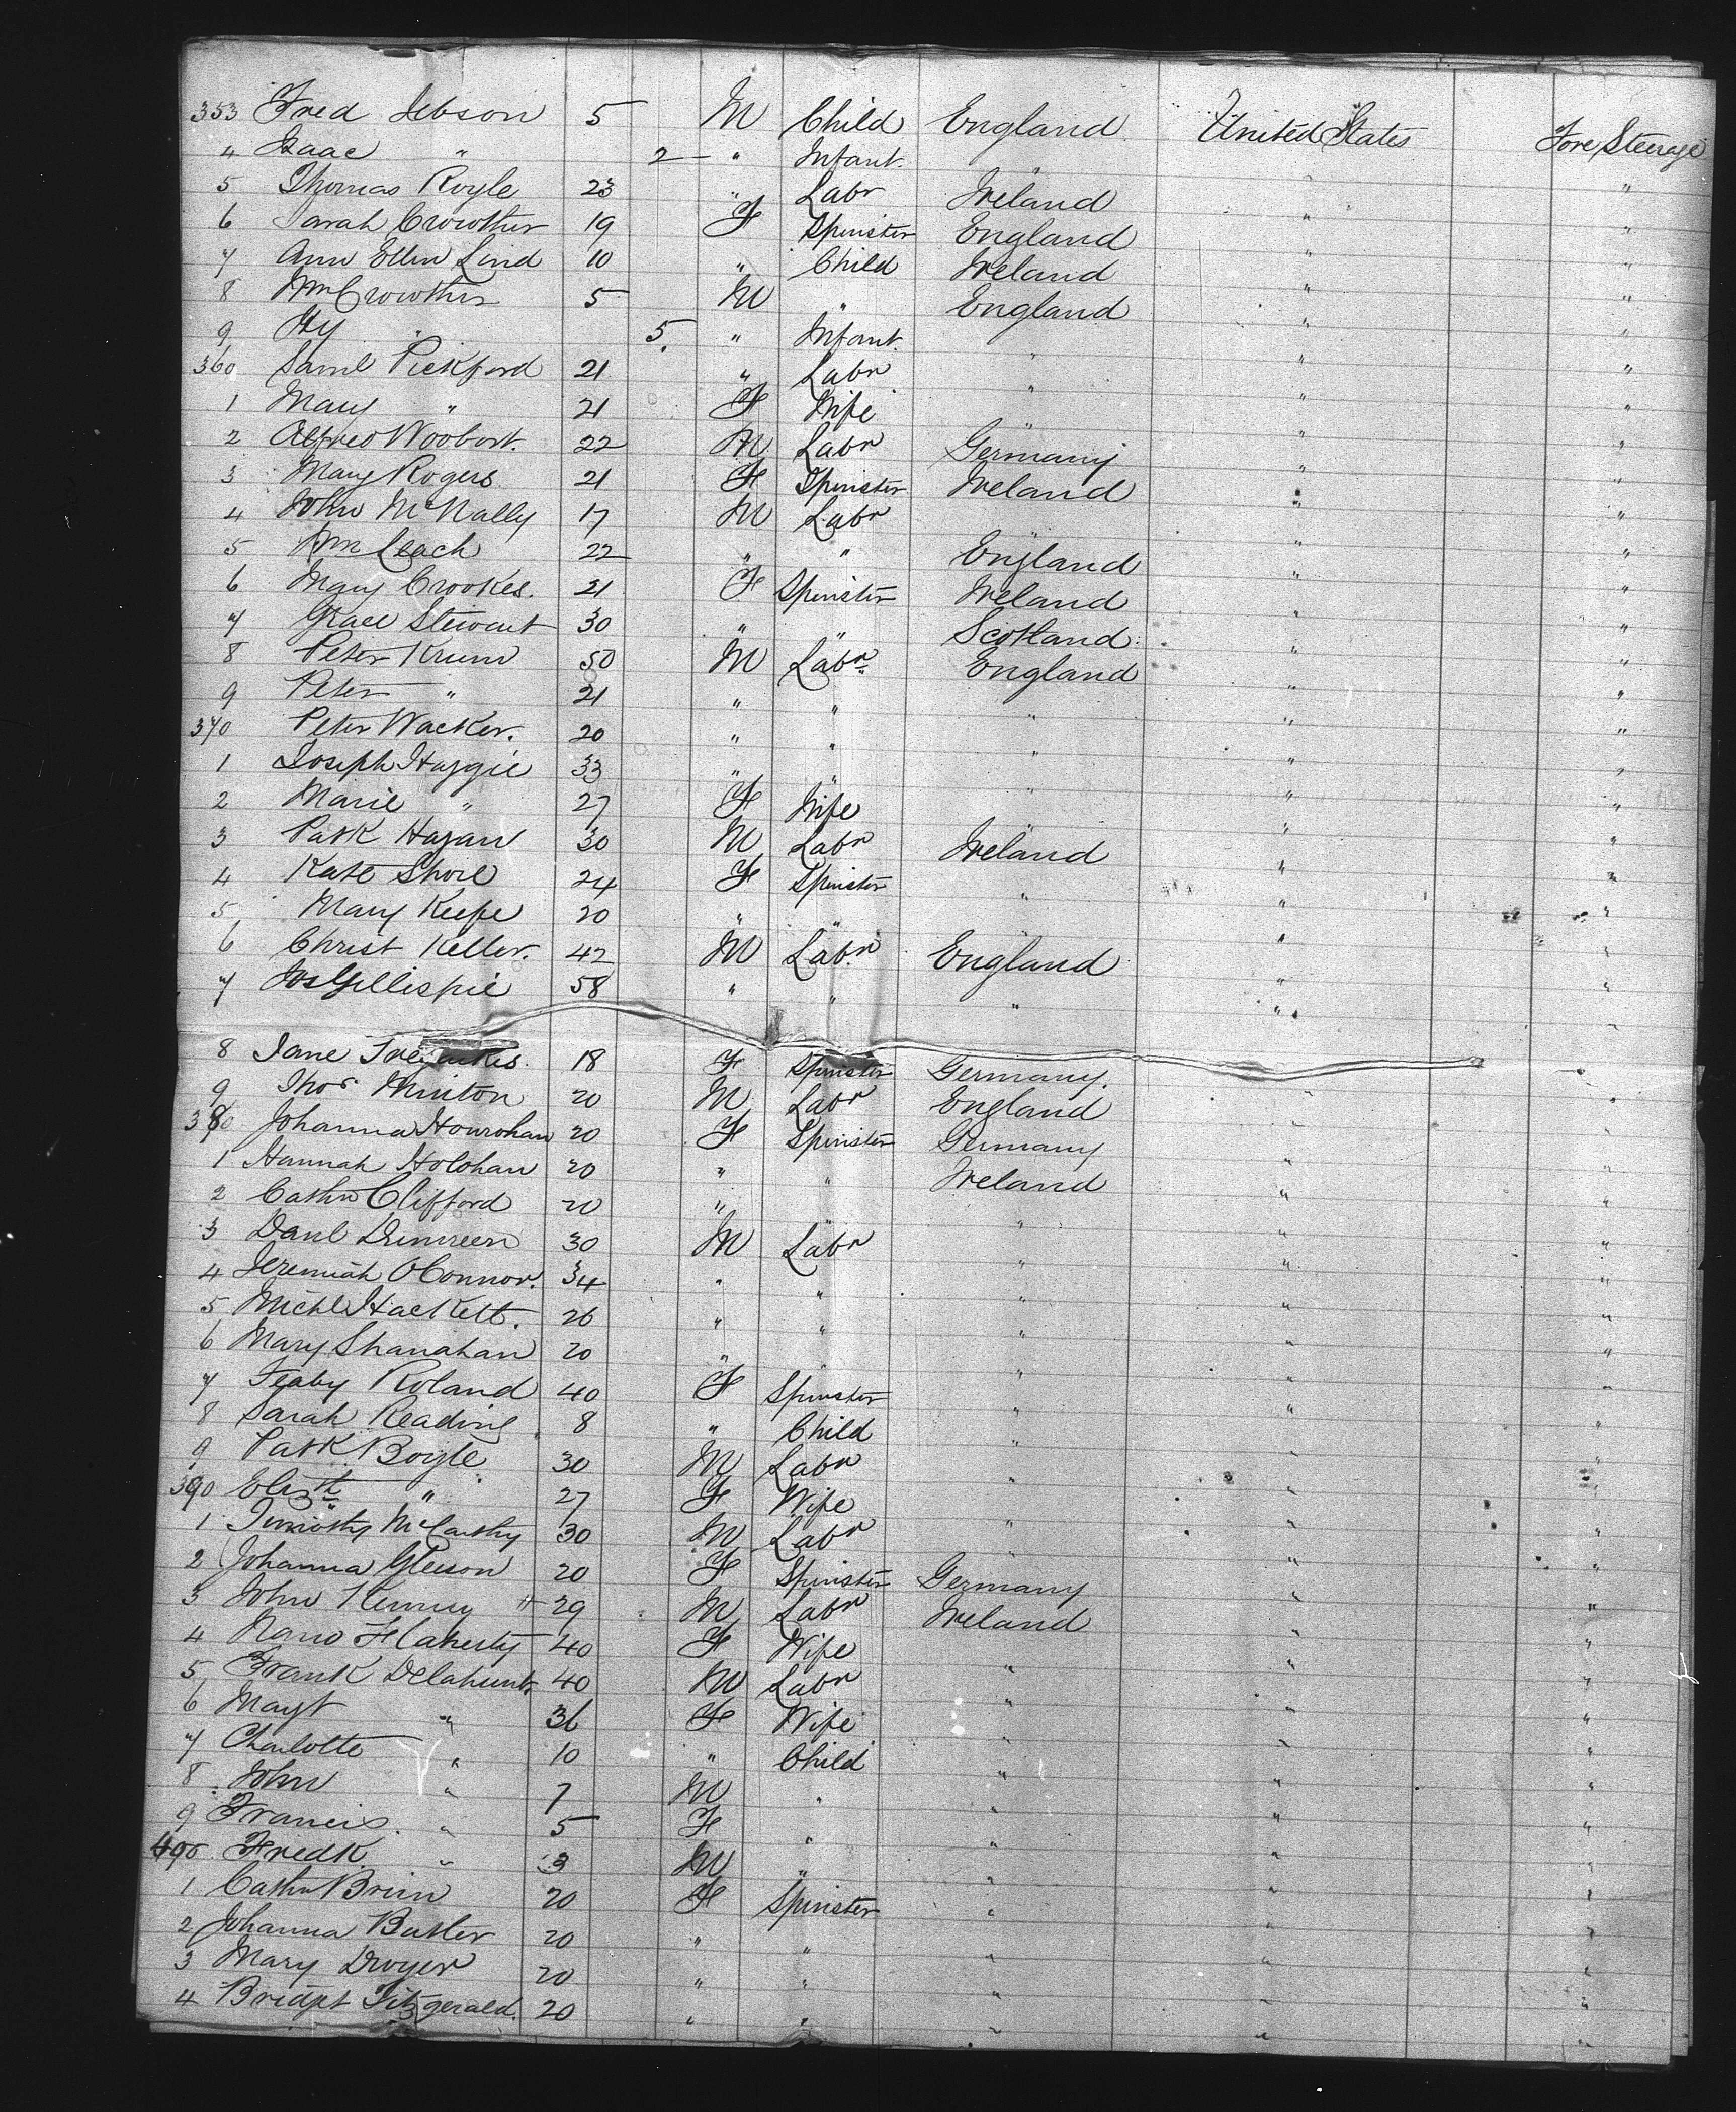 353 Fred Jebson 5 M Child England United States Fore Steerage
4 Isaac " 2 " Infant " " "
5 Thomas Royle 23 " Labr Ireland " "
6 Sarah Crowther 19 F Spinster England " "
7 Ann Ellen Lind 10 " Child Ireland " "
8 Wm Crowther 5 M " England " "
9 Hy " 5 " Infant " " "
360 Saml Pickford 21 " Labr " " "
1 Mary " 21 F Wife " " "
2 Alfred 22 M Labr Germany " "
3 Mary Rogers 21 F Spinster Ireland " "
4 John McNally 17 M Labr " " "
5 Wm Leach 22 " " England " "
6 Mary Crookes. 21 F Spinster Ireland " "
7 Grace Stewart 30 " " Scotland " "
8 Peter Krum 50 M Labr England " "
9 Peter " 21 " " " " "
370 Peter Wacker. 20 " " " " "
1 Joseph Haggie 33 " " " " "
2 Marie " 27 F Wife " " "
3 Patk Hagan 30 M Labr Ireland " "
4 Kate Shore 24 F Spinster " " "
5 Mary Keefe 20 " " " " "
6 Christ Keller. 42 M Labr England " "
7 Jos Gillispie 58 " " " " "
8 Jane 18 F Spinster Germany. " "
9 Thos Minton 20 M Labr England " "
380 Johanna Hourohan 20 F Spinster Germany " "
1 Hannah Holohan 20 " " Ireland " "
2 Cathn Clifford 20 " " " " "
3 Danl 30 M Labr " " "
4 Jeremiah OConnor. 34 " " " " "
5 Michl Hackett. 26 " " " " "
6 Mary Shanahan 20 " " " "
7 Roland 40 F Spinster " " "
8 Sarah Reading 8 " Child " " "
9 Patk Boyle 30 M Labr " " "
390 Elizth " 27 F Wife " " "
1 Timothy McCarthy 30 M Labr " " "
2 Johanna Gleeson 20 F Spinster Germany " "
3 John Kenny 29 M Labr Ireland " "
4 Nano Flaherty 40 F Wife " " "
5 Frank Delahunt 40 M Labr " " "
6 Magt " 36 F Wife " " "
7 Charlotte " 10 " Child " " "
8 John " 7 M " " " "
9 Francis. " 5 F " " " "
400 Fredk " 3 M " " " "
1 Cathn Brien 20 F Spinster " " "
2 Johanna Butler 20 " " " " "
3 Mary Dwyer 20 " " " " "
4 Bridget Fitzgerald. 20 " " " " "